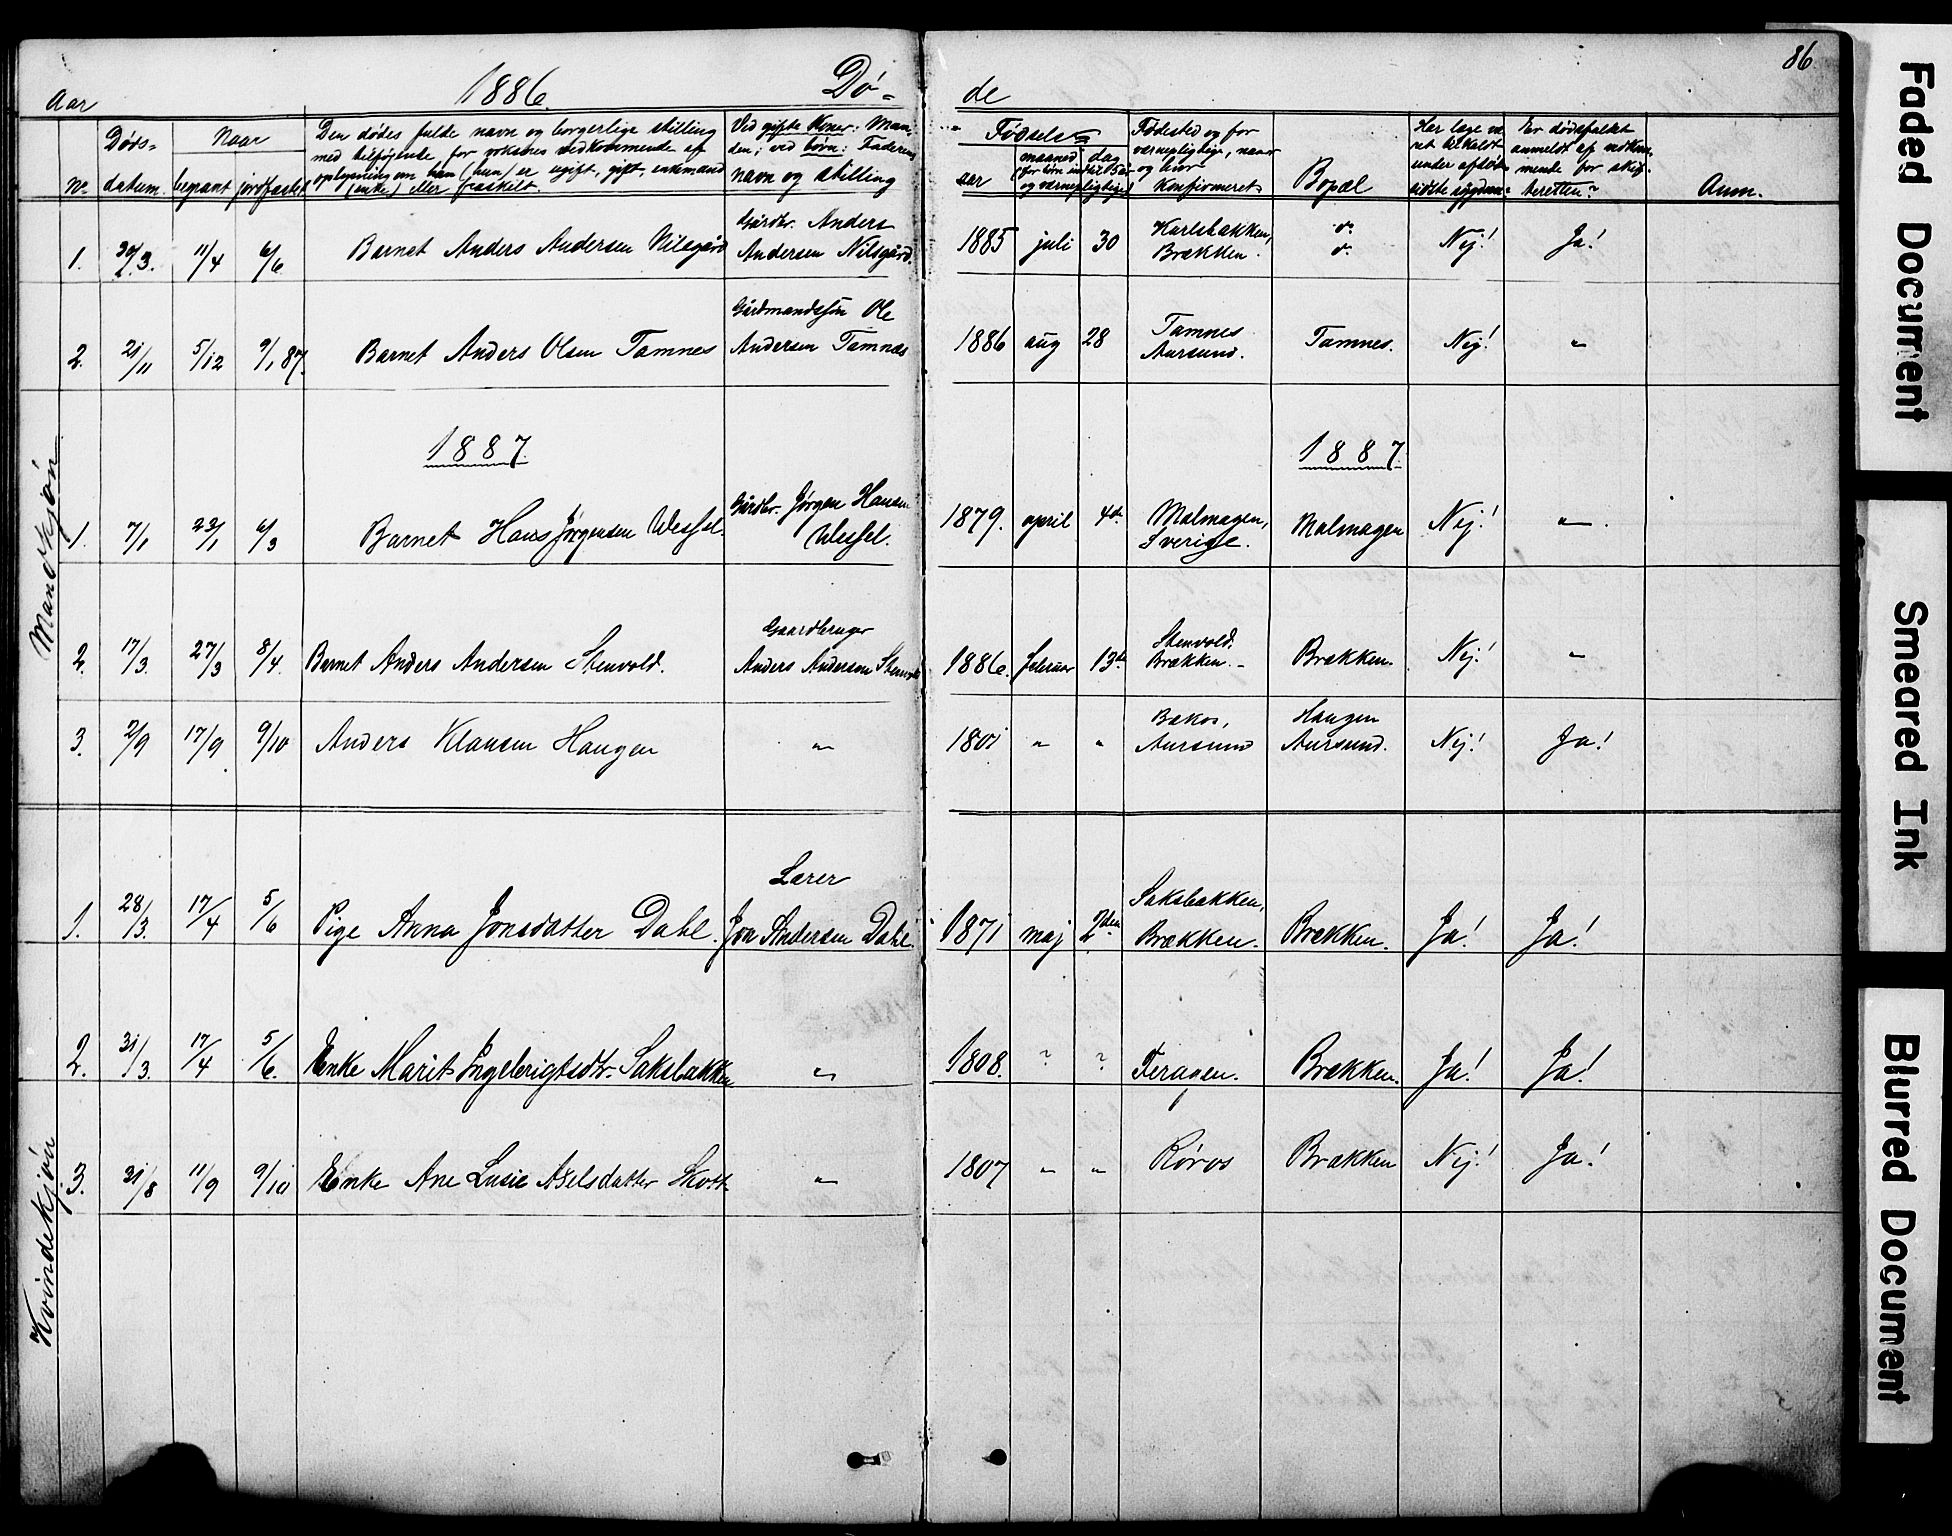 86
Aar 1886. Dø- de
No. Døds-datum. Naar begravet jordfæstet Den dødes fulde navn og borgerlige stilling med tilføjende for voksnes vedkommende af oplysning om han (hun) er ugift, gift, enkemand (enke) eller fraskilt. Ved gifte Koner: Manden; ved børn: Faderens navn og stilling Fødsels- aar maaned dag (for børn indtil 5 aar og værnepligtige) Fødested og for værnepligtige, naar og hvor Konfirmeret Bopæl Har læge været tilkaldt under afdødes sidste sygdom? Er dødsfaldet anmeldt af vedkommende for skifteretten? Anm.
Mandkjøn
1. 30/3. 11/4 6/6 Barnet Anders Andersen Nilsgård Gårdbr. Anders Andersen Nilsgård. 1885 juli 30 Karlsbakken, Brækken. d. d. Nej! Ja!
2. 21/11 5/12 9/1 87. Barnet Anders Olsen Tamnes Gårdmandssön Ole Andersen Tamnæs 1886 aug 28 Tamnes Aursund. Tamnes. Nej! "
1887. 1887.
1. 7/1 23/1 6/3 Barnet Hans Jørgensen Wessel. Gårdbr. Jørgen Hansen Wessel. 1879. april 4de Malmagen, Sverige. Malmagen Nej! "
2. 17/3. 27/3 8/4. Barnet Anders Andersen Stenvold. Gaardbruger Anders Andersen Stenvold 1886. februar 13de Stenvold. Brækken. Brækken. Nej! "
3. 2/9 17/9. 9/10 Anders Klausen Haugen " 1801 " " Bakos, Aursund Haugen Aursund. Nej! Ja!
Kvindekjøn
1. 28/3. 17/4 5/6 Pige Anna Jonsdatter Dahl. Lærer Jon Andersen Dahl. 1871 maj 2den Saksbakken, Brækken. Brækken. Ja! Ja!
2. 31/3. 17/4 5/6. Enke Marit Ingebrigtsdtr. Saksbakken " 1808. ? ? Feragen. Brækken. Ja! Ja!
3. 31/8 11/9 9/10 Enke Ane Lusie Axelsdatter Skott " 1807 " " Røros Brækken Nej! Ja!
Faded Document
Smeared Ink
Blurred Document